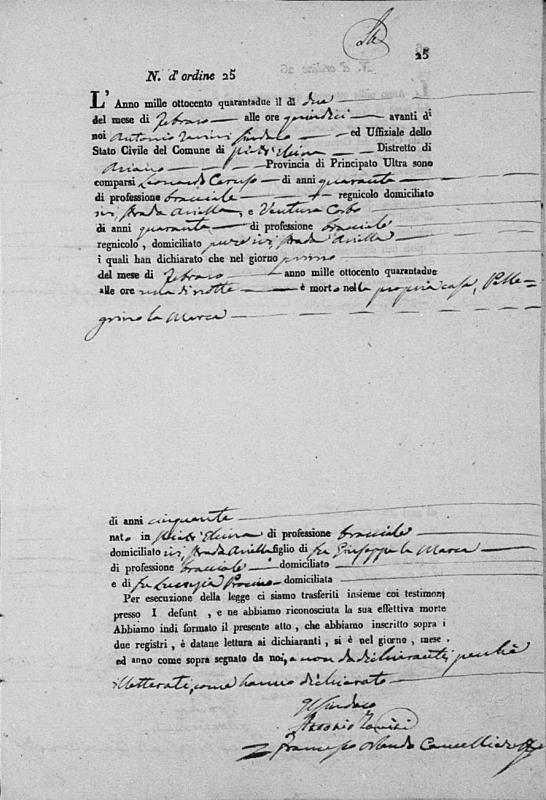 25
N. d'ordine 25
L'Anno mille ottocento quarantadue il dì due
del mese di Febraro alle ore quindici avanti di
noi Antonio Sindaco ed Uffiziale dello
Stato Civile del Comune di Distretto di
Ariano Provincia di Principato Ultra sono
comparsi Leonardo Caruso di anni quaranta
di professione bracciale regnicolo domiciliato
ivi, strada e Ventura Corbo
di anni quaranta di professione bracciale
regnicolo, domiciliato pure ivi, strada
i quali han dichiarato che nel giorno primo
del mese di Febraro anno mille ottocento quarantadue
alle ore una di notte è morto nella propria casa, Pelle=
grino la Marca
di anni cinquanta
nato in di professione bracciale
domiciliato ivi, strada figlio di fu Giuseppe la Marca
di professione bracciale domiciliato
e di fu Lucrezia domiciliata
Per esecuzione della legge ci siamo trasferiti insieme coi testimonj
presso l defunt , e ne abbiamo riconosciuta la sua effettiva morte
Abbiamo indi formato il presente atto, che abbiamo inscritto sopra i
due registri, è datane lettura ai dichiaranti, si è nel giorno, mese,
ed anno come sopra segnato da noi, e non da dichiaranti, perchè
illetterati, come hanno dichiarato
Il Sindaco
Antonio
Francesco Orlando Cancelliere